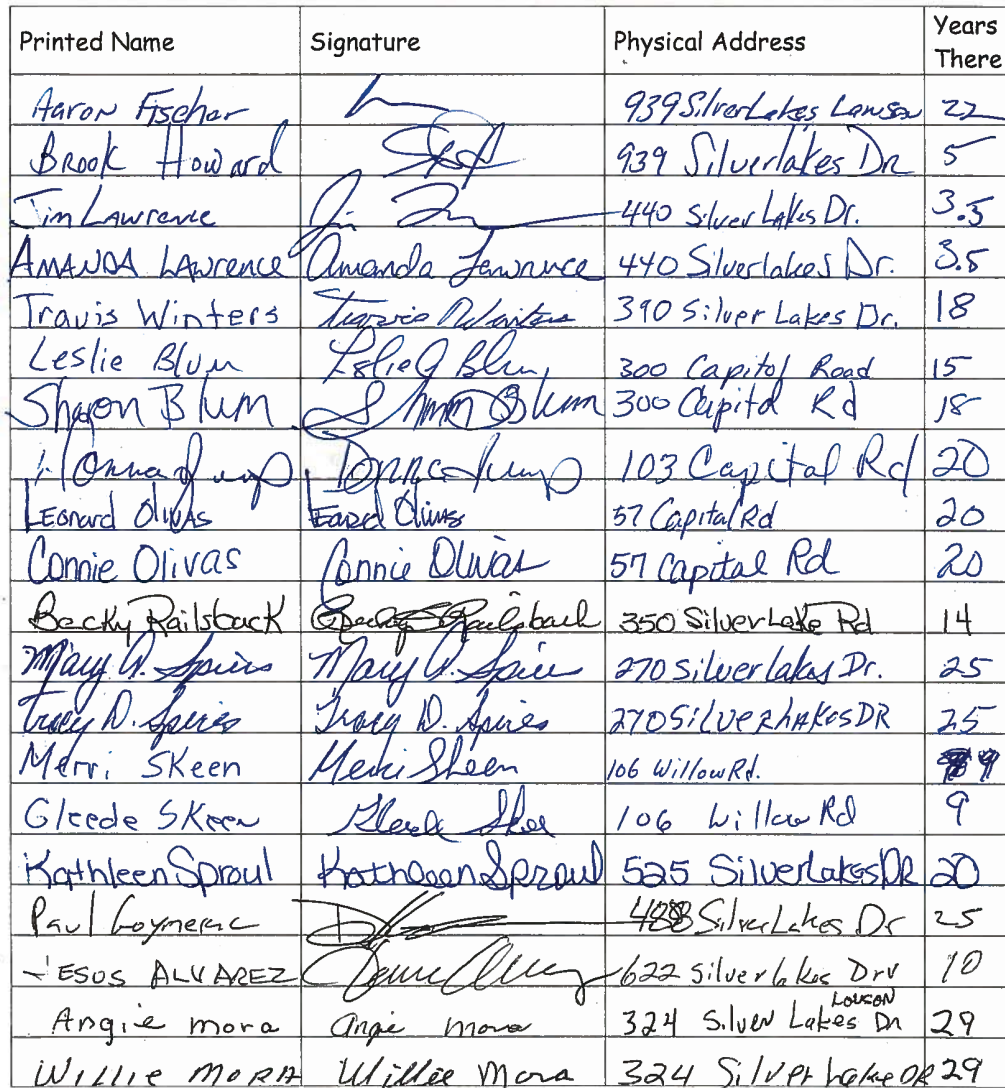 Printed Name Signature Physical Address Years There
Aaron Fischer 939 SilverLakes Lawson 22
Brook Howard 939 Silverlakes Dr 5
Jim Lawrence 440 Silver Lakes Dr. 3.5
AMANDA LAwrence Amanda Lawrence 440 Silverlakes Dr. 3.5
Travis Winters Travis Winters 390 Silver Lakes Dr. 18
Leslie Blum Leslie J Blum 300 Capitol Road 15
Sharon Blum Sharon Blum 300 Capitol Rd 18
Donna Donna 103 Capital Rd 20
LEonard Olivas Olivas 57 Capital Rd 20
Connie Olivas Connie Olivas 57 Capital Rd 20
Becky Railsback Becky Railsback 350 SilverLake Rd 14
Mary A. Spires Mary A. Spires 270 Silver lakes Dr. 25
Tracy D. Spires Tracy D. Spires 270 SilveRLAKes DR 25
Merri SKeen Merri Skeen 106 Willow Rd. 9
Gleede SKeen 106 Willow Rd 9
Kathleen Sproul Kathleen Sproul 525 SilverLakes DR 20
Paul 488 SilverLakes Dr 25
JESUS ALVAREZ 622 Silverlakes Drv 10
Angie mora angie mora 324 Silver Lakes Dr Lawson 29
Willie MORA Willie Mora 324 Silver Lakes DR 29